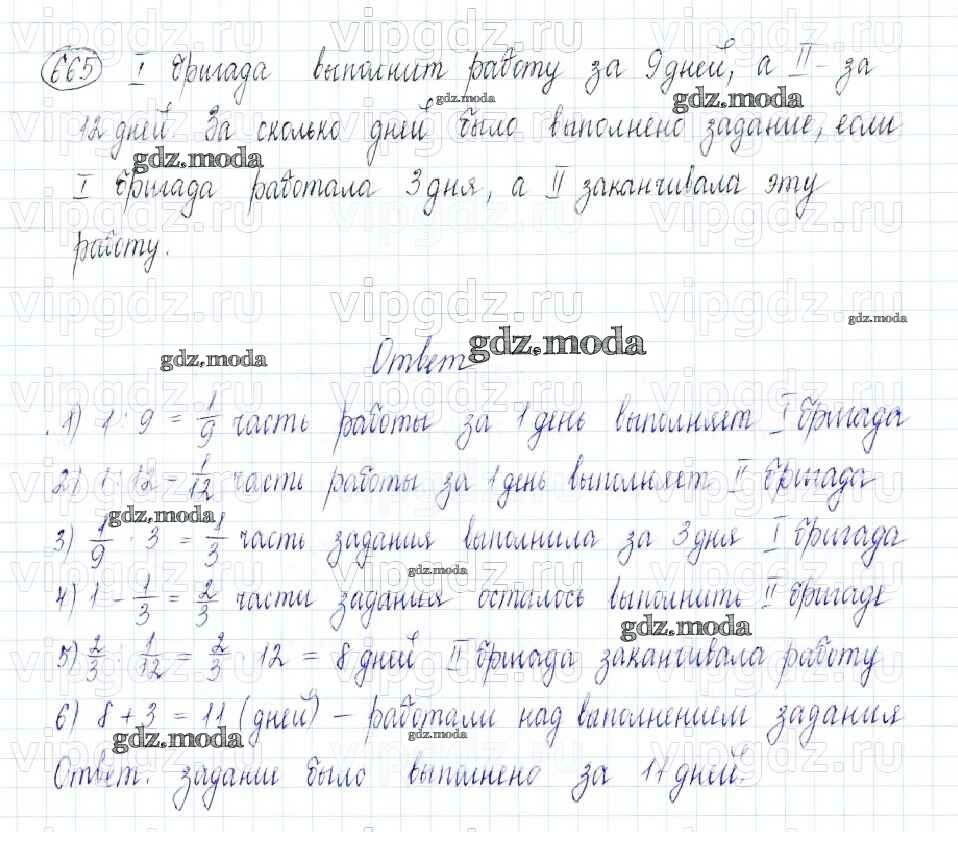 665 I бригада выполнит работу за 9 дней, а II - за
12 дней. За сколько дней было выполнено задание, если
I бригада работала 3 дня, а II заканчивала эту
работу.
Ответ
1) 1 : 9 = 1/9 часть работы за 1 день выполняет I бригада
2) 1 : 12 - 1/12 часть работы за 1 день выполняет II бригада
3) 1/9 · 3 = 1/3 часть задания выполнила за 3 дня I бригада
4) 1 - 1/3 = 2/3 части задания осталось выполнить II бригаде
5) 2/3 : 1/12 = 2/3 · 12 = 8 дней II бригада заканчивала работу
6) 8 + 3 = 11 (дней) - работали над выполнением задания
Ответ: задание было выполнено за 11 дней.
gdz.moda
vipgdz.ru